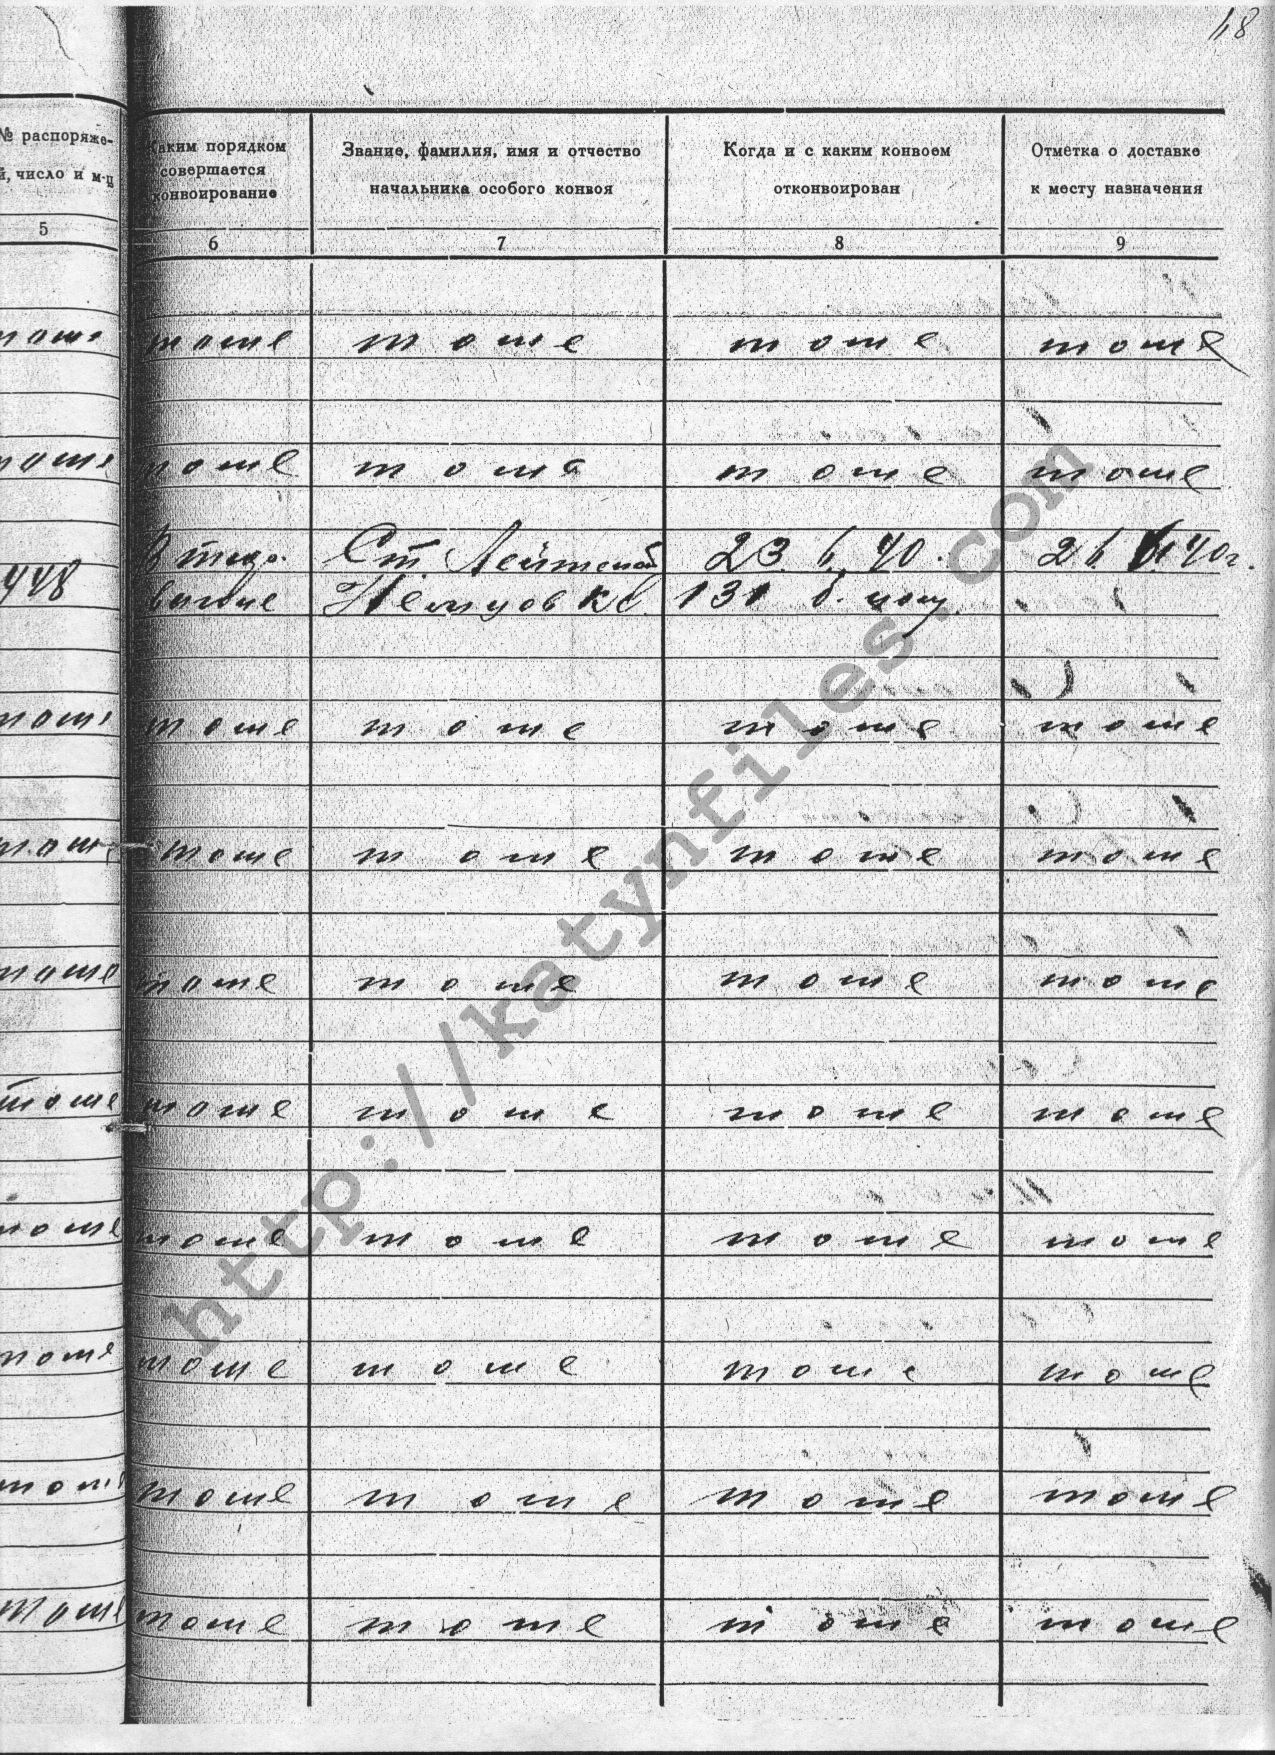 48
№ распоряже-
й, число и м-ц
5
Каким порядком
совершается
конвоирование
6
Звание, фамилия, имя и отчество
начальника особого конвоя
7
Когда и с каким конвоем
отконвоирован
8
Отметка о доставке
к месту назначения
9
тоже тоже тоже тоже тоже
тоже тоже тоже тоже тоже
448
Ст. Лейтенант
23. 40.
131
40г.
тоже тоже тоже тоже тоже
тоже тоже тоже тоже тоже
тоже тоже тоже тоже тоже
тоже тоже тоже тоже тоже
тоже тоже тоже тоже тоже
тоже тоже тоже тоже тоже
тоже тоже тоже тоже тоже
тоже тоже тоже тоже тоже
http://katynfiles.com